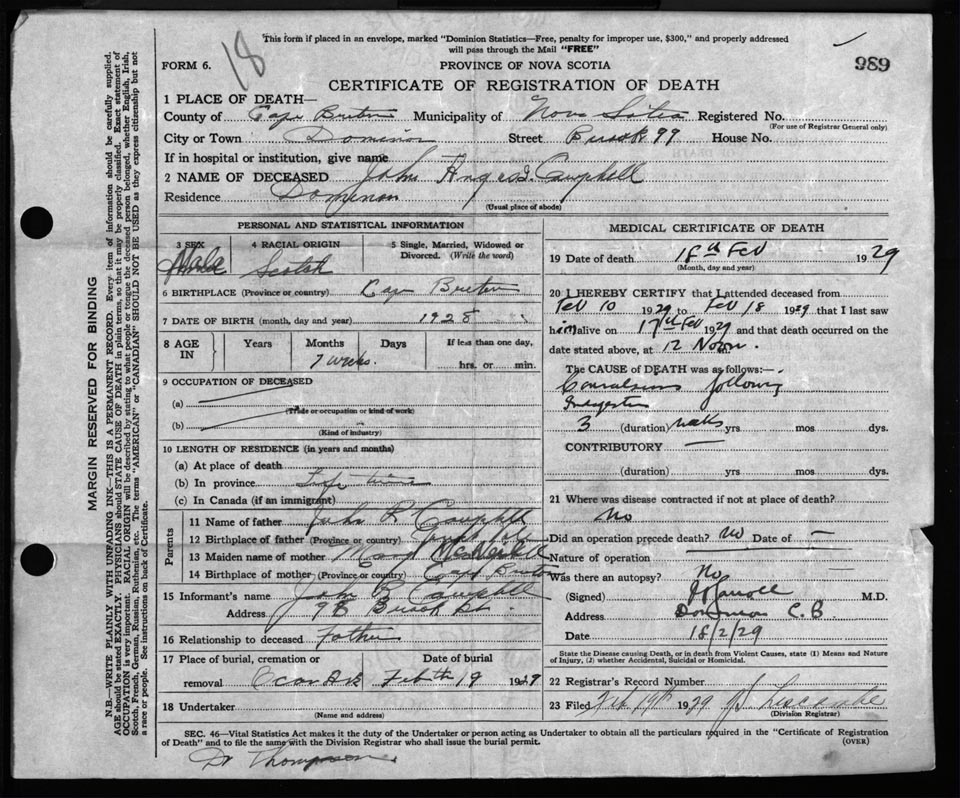 18
This form if placed in an envelope, marked "Dominion Statistics—Free, penalty for improper use, $300," and properly addressed
will pass through the Mail "FREE"
989
FORM 6.
PROVINCE OF NOVA SCOTIA
CERTIFICATE OF REGISTRATION OF DEATH
1 PLACE OF DEATH—
County of Cape Breton Municipality of Nova Scotia Registered No.
(For use of Registrar General only)
City or Town Dominion Street 99 House No.
If in hospital or institution, give name
2 NAME OF DECEASED John Angus Campbell
Residence Dominion
(Usual place of abode)
PERSONAL AND STATISTICAL INFORMATION
3 SEX Male
4 RACIAL ORIGIN Scotch
5 Single, Married, Widowed or Divorced. (Write the word)
6 BIRTHPLACE (Province or country) Cape Breton
7 DATE OF BIRTH (month, day and year) 1928
8 AGE IN Years Months Days If less than one day,
7 weeks hrs. or min.
9 OCCUPATION OF DECEASED
(a)
(Trade or occupation or kind of work)
(b)
(Kind of industry)
10 LENGTH OF RESIDENCE (in years and months)
(a) At place of death
(b) In province Life time
(c) In Canada (if an immigrant)
Parents
11 Name of father John R Campbell
12 Birthplace of father (Province or country)
13 Maiden name of mother Mary
14 Birthplace of mother (Province or country) Cape Breton
15 Informant's name John R Campbell
Address St.
16 Relationship to deceased Father
17 Place of burial, cremation or removal Date of burial
Feb 19 1929
18 Undertaker
(Name and address)
MEDICAL CERTIFICATE OF DEATH
19 Date of death 18th Feb 1929
(Month, day and year)
20 I HEREBY CERTIFY that I attended deceased from
Feb 10 1929 to Feb 18 1929 that I last saw
him alive on 17th Feb 1929 and that death occurred on
date stated above, at 12 Noon.
The CAUSE of DEATH was as follows:—
Convulsions following
Indigestion
3 (duration) weeks yrs mos dys.
CONTRIBUTORY
(duration) yrs mos dys.
21 Where was disease contracted if not at place of death?
No
Did an operation precede death? No Date of
Nature of operation
Was there an autopsy? No
(Signed) M.D.
Address Dominion C.B
Date 18/2/29
State the Disease causing Death, or in death from Violent Causes, state (1) Means and Nature
of Injury, (2) whether Accidental, Suicidal or Homicidal.
22 Registrar's Record Number
23 Filed Feb 19th 1929
(Division Registrar)
SEC. 46—Vital Statistics Act makes it the duty of the Undertaker or person acting as Undertaker to obtain all the particulars required in the "Certificate of Registration
of Death" and to file the same with the Division Registrar who shall issue the burial permit. (OVER)
Dr Thompson.
MARGIN RESERVED FOR BINDING
N.B.—WRITE PLAINLY WITH UNFADING INK—THIS IS A PERMANENT RECORD. Every item of information should be carefully supplied.
AGE should be stated EXACTLY. PHYSICIANS should STATE CAUSE OF DEATH in plain terms, so that it may be properly classified. Exact statement of
OCCUPATION is very important. RACIAL ORIGIN will be described by stating to what people or tongue the deceased person belonged, whether English, Irish,
Scotch, French, German, Russian, Ruthenian, etc. The terms "AMERICAN" or "CANADIAN" SHOULD NOT BE USED as they express citizenship but not
a race or people. See instructions on back of Certificate.